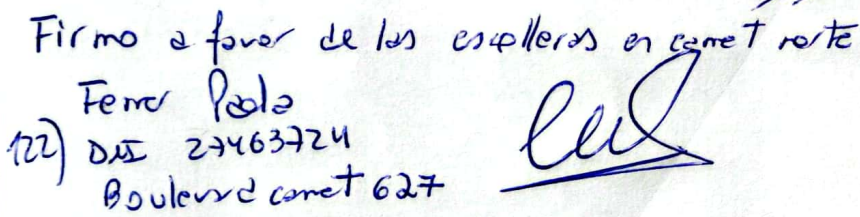 Firmo a favor de las escolleras en camet norte
Ferrer Paola
122) DNI 27463724
Boulevard camet 627